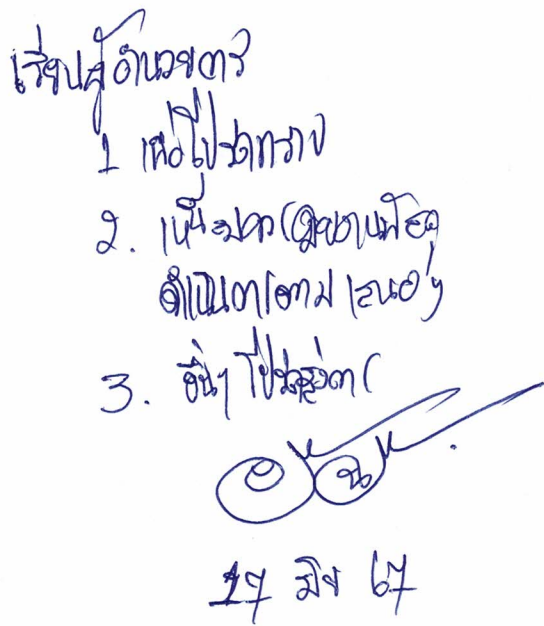 เรียนผู้อำนวยการ
1 เพื่อโปรดทราบ
2. เห็นควรมอบงานพัสดุ
ดำเนินการตามเสนอ
3. อื่นๆ โปรดสั่งการ
17 มิย 67